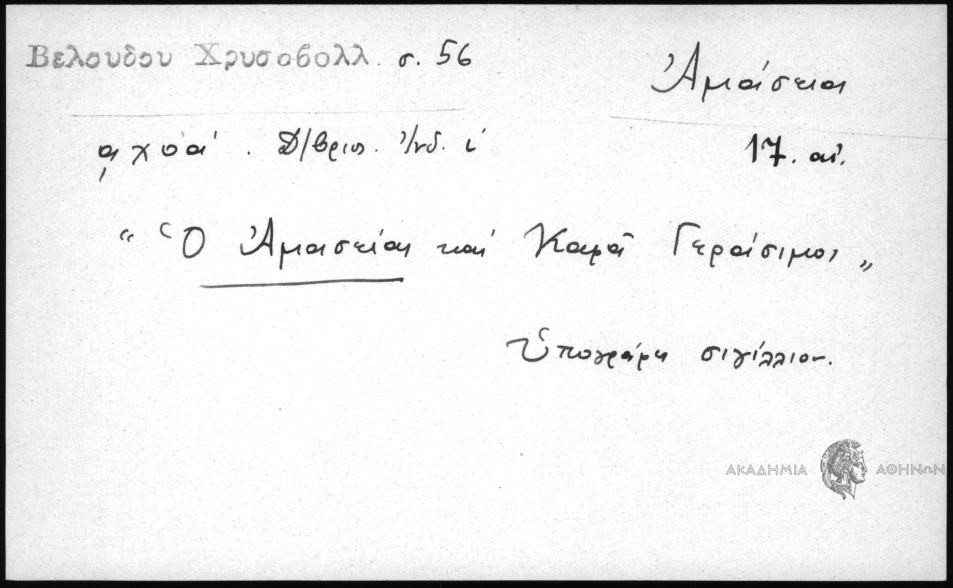 Βελουδου Χρυσοβολλ. σ. 56
Ἀμάσεια
͵αχοα΄. Δ/βριος. Ἰνδ. ι΄
17. αἰ.
“ Ὁ Ἀμασείας καὶ Καρᾶ Γεράσιμος „
Ὑπογράφει σιγίλλιον.
ΑΚΑΔΗΜΙΑ ΑΘΗΝΩΝ